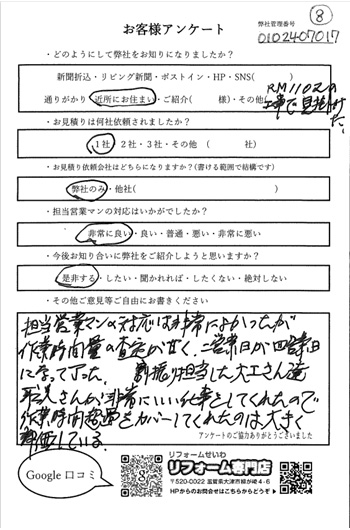 ⑧
お客様アンケート
弊社管理番号
0102407017
・どのようにして弊社をお知りになりましたか?
新聞折込・リビング新聞・ポストイン・HP・SNS( )
通りがかり・近所にお住まい・ご紹介( 様)・その他(
RM1102の
工事で見掛けた。
・お見積りは何社依頼されましたか?
1社・2社・3社・その他 ( 社)
・お見積り依頼会社はどちらになりますか?(書ける範囲で結構です)
弊社のみ・他社( )
・担当営業マンの対応はいかがでしたか?
非常に良い・良い・普通・悪い・非常に悪い
・今後お知り合いに弊社をご紹介しようと思いますか?
是非する・したい・聞かれれば・したくない・絶対しない
・その他ご意見等ご自由にお書きください
担当営業マンの対応は非常によかったが
作業時間量の査定が甘く、二営業日が四営業日
になってしまった。割振り担当した大工さん達
職人さんが非常にいい仕事をしてくれたので
作業時間超過をカバーしてくれたのは大きく
評価している。
アンケートのご協力ありがとうございました
Google 口コミ
リフォームせいわ
リフォーム専門店
〒520-0022 滋賀県大津市柳が崎4-6
HPからのお問合せはこちらからどうぞ